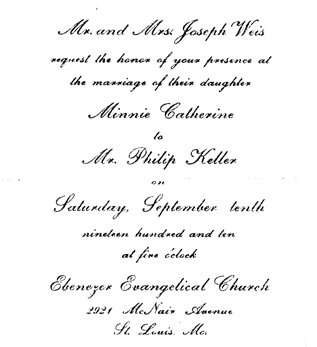 Mr. and Mrs. Joseph Weis
request the honor of your presence at
the marriage of their daughter
Minnie Catherine
to
Mr. Philip Keller
on
Saturday, September tenth
nineteen hundred and ten
at five o'clock
Ebenezer Evangelical Church
2921 McNair Avenue
St. Louis. Mo.